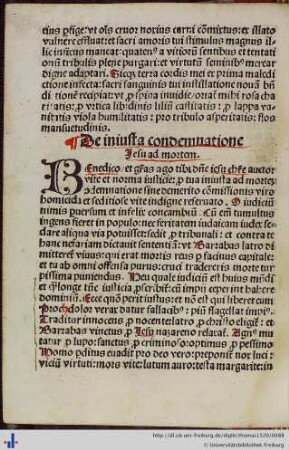 eius pfige: vt ols cruor noxius carni cōmixtus: et illato
vulnere effluat: et sacri amoris tui stimulus magnus ill-
ic infixus maneat: quaten⁹ a vitiorū sentibus et tentati
onū tribulis plene purgari: et virtutū seminib⁹ merear
digne adaptari. terra cordis mei ex prima maledi
ctione infecta: sacri sanguinis tui instillatione nouā bn̄
di tionē recipiat: vt p spina inuidie: orat mihi rosa cha
ritatis: p vrtica libidinis liliū castitatis: p lappa va
nitatis viola humilitatis: pro tribulo asperitatis: flos
mansuetudinis.
¶ De iniusta condemnatione
Jesu ad mortem.
BEnedico et grās ago tibi dn̄e iesu chr̄e auctor
vite et norma iusticie: p tua iniusta ad mortē
demnatione sine demerito cōmissionis viro
homicida et seditiose vite indigne reseruato. O iudiciū
nimis peruersum et infelix concambiū. Cū em̄ tumultus
ingens fieret in populo: nec feritatem iudaicam iudex se-
dare aliqua via potuisset: sedit p tribunali: et contra te
hanc nefariam dictauit sententiā: vt Barrabas latro di
mitteret viuus: qui erat mortis reus p facinus capitale:
et tu ab omni offensa purus: cruci traderis morte tur
pissima puniendus. Heu quale iudiciū est huius mūdi
et q̄ longe tūc iusticia pscribit: cū impii ceperint habere
dominiū. Ecce quō perit iustus: et nō est qui liberet eum
Proch dolor verax datur fallacib⁹: pius flagellat impi⁹.
Traditur innocens p nocente: latro p christo eligit: et
Barrabas vinctus p Jesu nazareno relaxat. Agn⁹ mu
tatur p lupo: sanctus p criminoso: optimus p pessimo
Homo peditus euadit pro deo vero: preponit nor luci:
vicium virtuti: mors vite: lutum auro: testa margarite: in
http://dl.ub.uni-freiburg.de/diglit/thomas1520/0088
© Universitätsbibliothek Freiburg